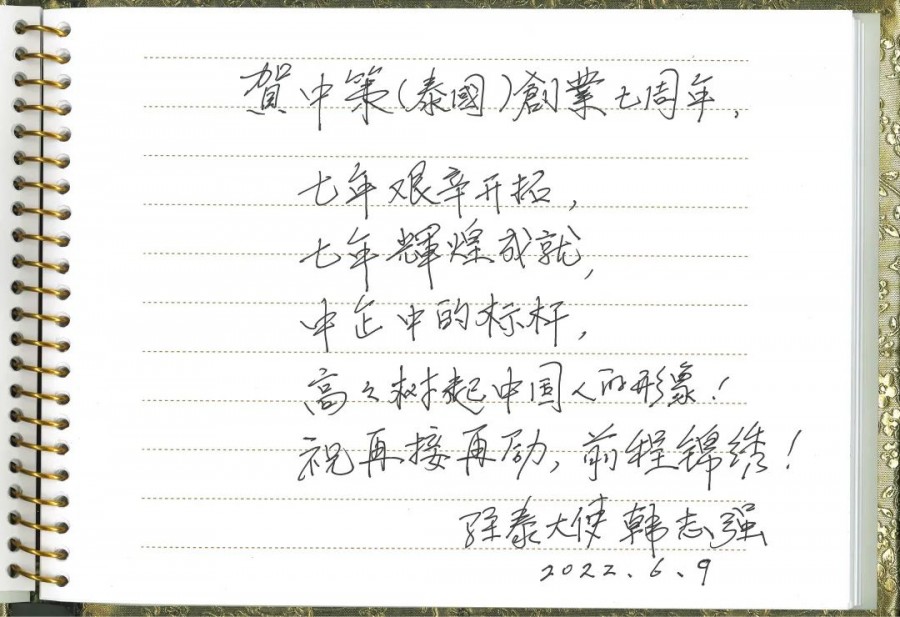 賀中策(泰國)創業七周年,
七年艰辛开拓,
七年輝煌成就,
中企中的标杆,
高々树起中国人的形象!
祝再接再励,前程锦绣!
驻泰大使 韩志强
2022.6.9